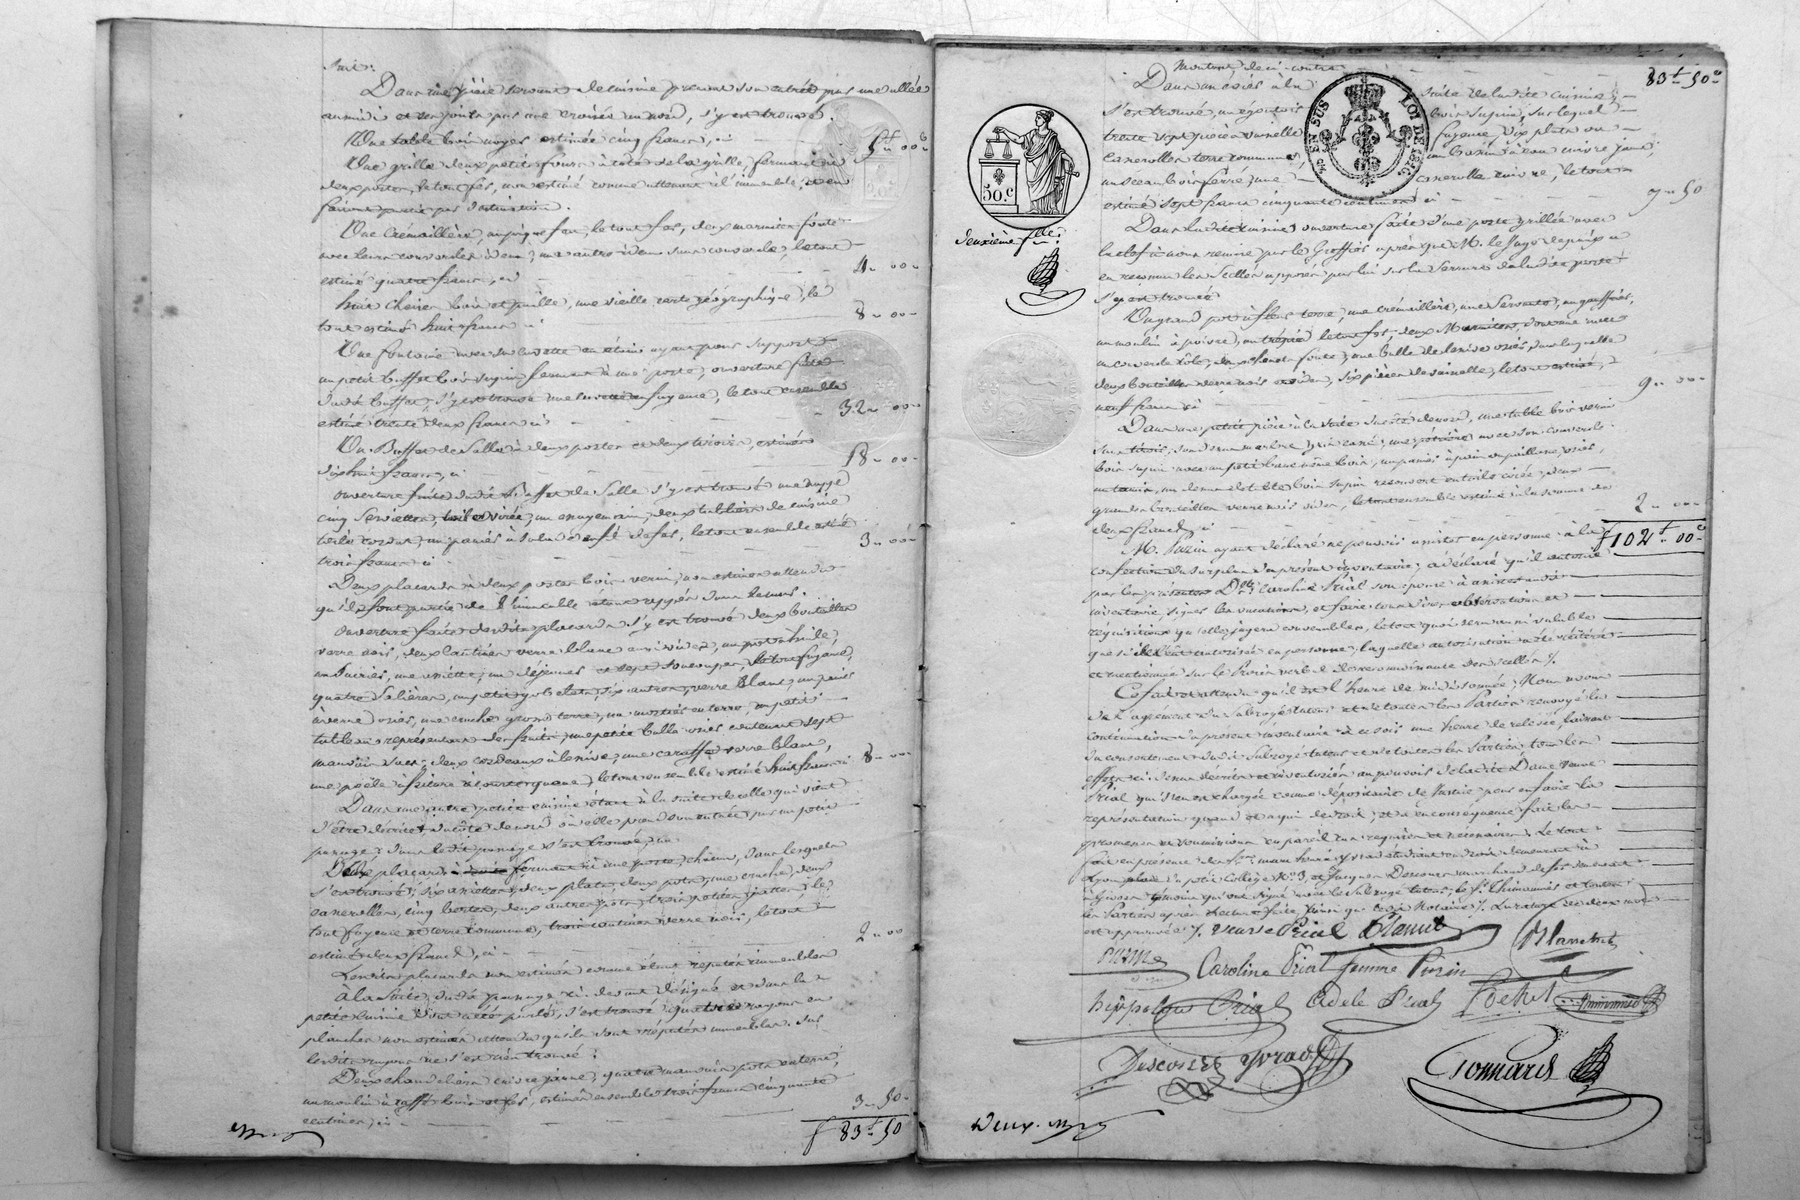 Suit:
Dans une pièce servant de cuisine prenant son entrée par une allée
au midi et son jour par une croisée au nord, s'y est trouvé.
Une table bois noyer estimée cinq francs, ci 5f 00c
Une grille deux petits fours à côté de la grille, fermant à
deux portes, le tout fer, non estimé comme attenant à l'immeuble, et en
faisant partie par destination.
Une Crémaillère, un pique feu, le tout fer, deux marmites fonte
avec leurs couvercles idem, une autre idem sans couvercle, le tout
estimé quatre francs, ci 4 00
huit chaises bois et paille, une vieille carte géographique, le
tout estimé huit francs ci 8 00
Une fontaine avec sa cuvette en étain ayant pour support
un petit buffet bois sapin fermant à une porte, ouverture faite
dudit buffet, s'y est trouvé une cuvette en fayence, le tout ensemble
estimé trente deux francs ci 32 00
Un Buffet de Salle à deux portes et deux tiroirs, estimé
dix huit francs, ci 18 00
ouverture faite dudit Buffet de Salle s'y est trouvé une nappe
cinq Serviettes, toile cirée, un essuyemain, deux tabliers de cuisine
toile, un panier à salade fil de fer, le tout ensemble estimé
trois francs ci 3 00
Deux placards à deux portes bois verni, non estimés attendu
qu'ils font partie de l'immeuble
ouverture faite desdits placards s'y est trouvé deux bouteilles
verre noir, deux verre blanc un pot à huile,
une assiette, un déjeuner et sept soucoupes, le tout fayence,
quatre Salières, un petit six autres verre blanc, un panier
à verre osier, une cruche terre, un mortier en terre, un petit
tableau représentant des fruits, une petite balle osier contenant sept
mauvais sacs, deux cordeaux à lessive, une caraffe verre blanc,
une poële à friture le tout ensemble estimé huit francs ci 8 00
Dans une autre petite cuisine étant à la suite de celle qui vient
d'être décrite, du côté du nord où elle prend son entrée par un petit
passage, dans ledit passage s'est trouvé,
Deux placards fermant à une porte chacun, dans lesquels
s'est trouvé, six assiettes, deux plats, deux pots, une cruche, deux
casserolles, cinq deux autres pots, trois petites jattes, le
tout fayence et terre commune, verre noir, le tout
estimé deux francs, ci 2 00
Lesdits placards non estimés comme étant réputés immeubles
À la suite dudit passage ci devant désigné et dans la
petite cuisine dont a été parlé, s'est trouvé quatre rayons en
planches non estimés attendu qu'ils sont réputés immeubles. Sur
lesdits rayons ne s'est rien trouvé,
Deux chandeliers cuivre jaune, quatre mauvais pots en terre,
un moulin à caffé bois et fer, estimés ensemble trois francs cinquante
centimes, ci 3 50
f 83f 50
Montant de ci-contre 83f 50c
Dans un évier à la suite de ladite cuisine
s'est trouvé, un égoutoir bois sapin, sur lequel
trente sept pièces vaisselle fayence, dix plats ou
Casserolles terre commune, un bassin à eau cuivre jaune,
un sceau bois ferré, une casserolle cuivre, le tout
estimé sept francs cinquante centimes ci 7 50
Dans ladite cuisine, ouverture faite d'une porte grillée avec
la clef à nous remise par le Greffier après que M. le Juge de paix a
eu reconnu les Scellés apposés par lui sur la Serrure de ladite porte
s'y est trouvé
Un grand pot à fleurs terre, une crémaillère, une Servante, un gauffrier,
un moulin à poivre, un trépied le tout fer, deux Marmites, dont une avec
un couvercle tôle, fonte, une balle de lessive osier, dans laquelle
deux bouteilles verre noir et vides, six pièces de vaisselle, le tout estimé,
neuf francs ci 9 00
Dans une petite pièce à la suite du côté du nord, une table bois verni
sur tiroir, sans dessus marbre gris cassé, une pétrière avec son couvercle
bois sapin avec un petit banc même bois, un panier à pain en paille,
un dessus de table bois sapin recouvert en toile cirée, deux
grandes bouteilles verre noir vides, le tout ensemble estimé à la somme de
deux francs, ci 2 00
f 102f 00c
M. Puzin ayant déclaré ne pouvoir assister en personne à la
confection du surplus du présent inventaire, a déclaré qu'il autorise
par les présentes Dame Caroline Prial son épouse à assister audit
inventaire, signer les vacations, et faire tous dires observations et
réquisitions qu'elle jugera convenables, le tout quoi sera aussi valable
que si elle était autorisée en personne, laquelle autorisation a été réitérée
et mentionnée sur le Procès verbal de reconnaissance des scellés.
Ce fait et attendu qu'il est l'heure de midi sonnée, Nous avons
de l'agrément du Subrogé tuteur et de toutes les Parties renvoyé la
continuation du présent inventaire à ce soir une heure de relevée, laissant
du consentement dudit Subrogé tuteur et de toutes les Parties, tous les
effets ci dessus décrits et inventoriés au pouvoir de ladite Dame veuve
Prial, qui s'en est chargée comme dépositaire de Justice pour en faire la
représentation quand et à qui de droit, et a en conséquence fait les
promesses et soumissions en pareil cas requises et nécessaires. Le tout
fait en présence de Srs marc henri Yvrad étudiant en droit demeurant à
Lyon place du petit Collège No 3, et Jacques Descours marchand de fer demeurant
à Givors témoins qui ont signé avec le Subrogé tuteur, le Sr Thimonnier et toutes
les Parties après lecture faite, ainsi que le dit Notaire. La rature de deux mots
est approuvée. Veuve Prial Blanchet
Blanchet
Puzin
Caroline Prial femme Puzin
hippolyte Prial Adele Prial Pochet Thimonnier
Descours Yvrad
Gonnard
EN SUS
LOI DE 1816
50.c
deuxième flle.
Deux.